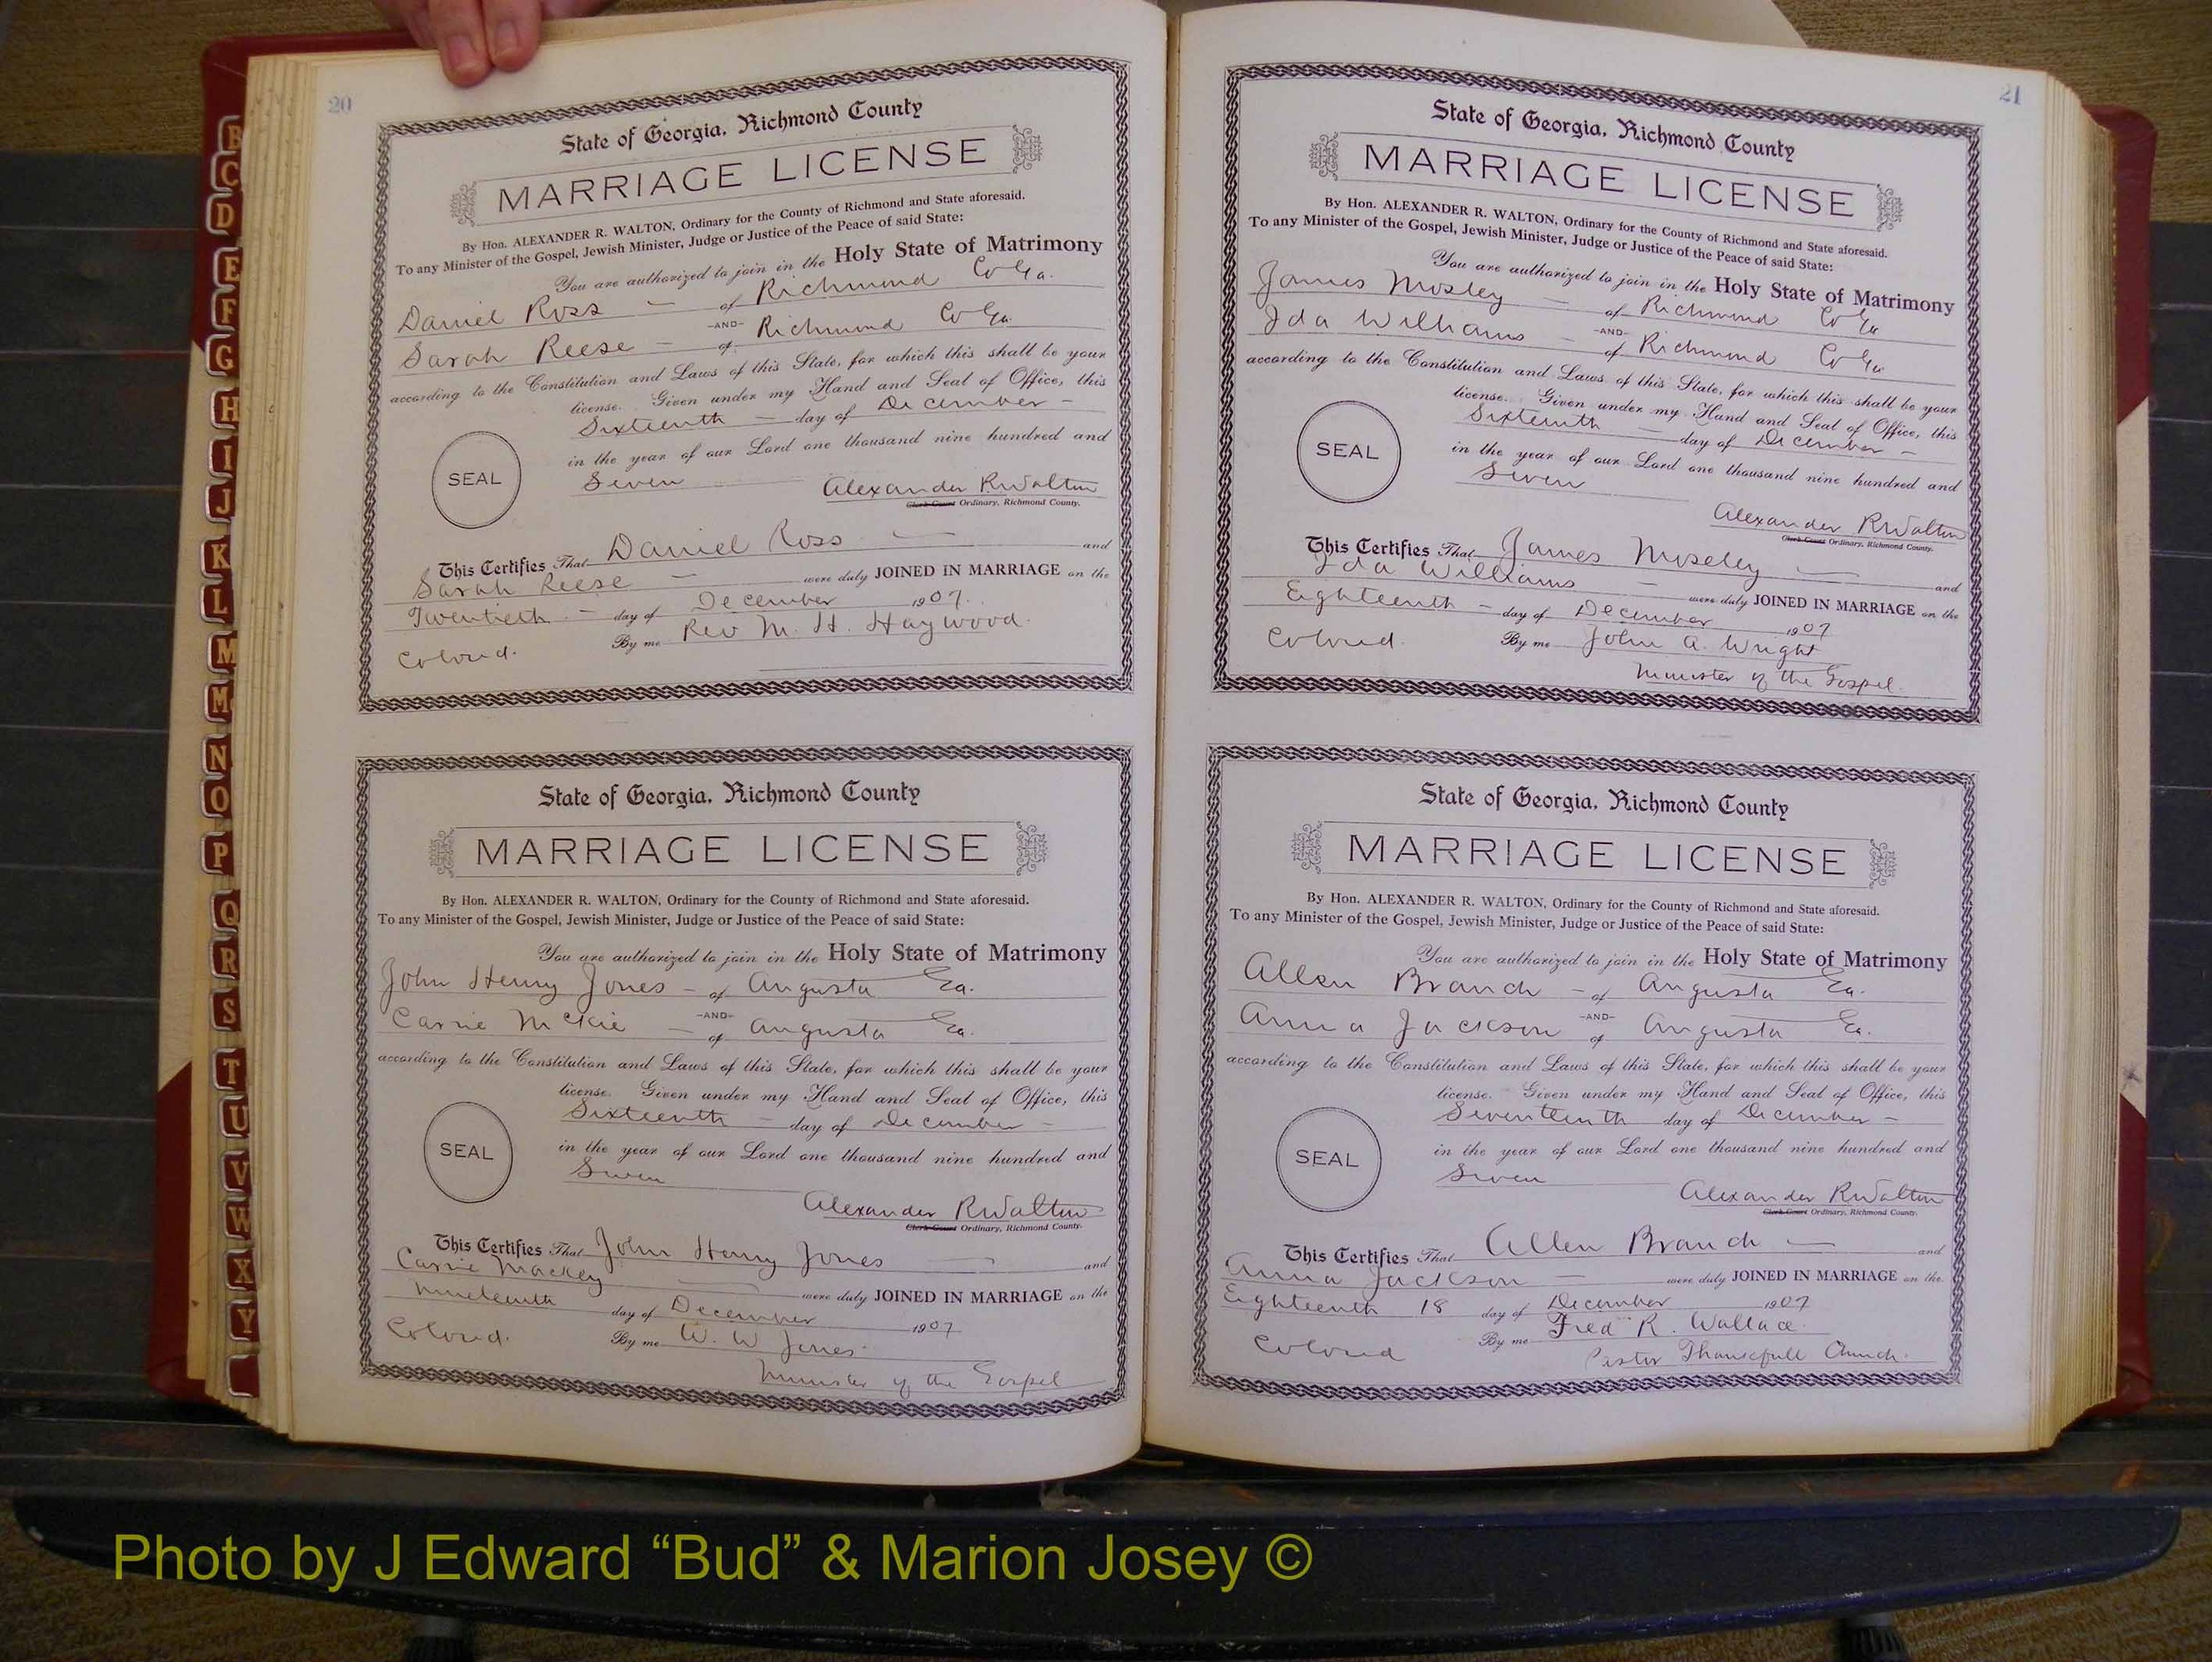 20
State of Georgia, Richmond County
MARRIAGE LICENSE
By Hon. ALEXANDER R. WALTON, Ordinary for the County of Richmond and State aforesaid.
To any Minister of the Gospel, Jewish Minister, Judge or Justice of the Peace of said State:
You are authorized to join in the Holy State of Matrimony
Daniel Ross — of Richmond Co Ga.
-AND-
Sarah Reese — of Richmond Co Ga.
according to the Constitution and Laws of this State, for which this shall be your
license. Given under my Hand and Seal of Office, this
Sixteenth — day of December —
in the year of our Lord one thousand nine hundred and
SEAL
Seven
Alexander R Walton
Clerk Court Ordinary, Richmond County.
This Certifies That Daniel Ross — and
Sarah Reese — were duly JOINED IN MARRIAGE on the
Twentieth — day of December 1907.
By me Rev M. H. Haywood.
Colored.
State of Georgia, Richmond County
MARRIAGE LICENSE
By Hon. ALEXANDER R. WALTON, Ordinary for the County of Richmond and State aforesaid.
To any Minister of the Gospel, Jewish Minister, Judge or Justice of the Peace of said State:
You are authorized to join in the Holy State of Matrimony
John Henry Jones — of Augusta Ga.
-AND-
Carrie McKie — of Augusta Ga.
according to the Constitution and Laws of this State, for which this shall be your
license. Given under my Hand and Seal of Office, this
Sixteenth — day of December —
in the year of our Lord one thousand nine hundred and
SEAL
Seven
Alexander R Walton
Clerk Court Ordinary, Richmond County.
This Certifies That John Henry Jones — and
Carrie Mackey — were duly JOINED IN MARRIAGE on the
Nineteenth day of December 1907
By me W. W Jones
Colored.
Minister of the Gospel
21
State of Georgia, Richmond County
MARRIAGE LICENSE
By Hon. ALEXANDER R. WALTON, Ordinary for the County of Richmond and State aforesaid.
To any Minister of the Gospel, Jewish Minister, Judge or Justice of the Peace of said State:
You are authorized to join in the Holy State of Matrimony
James Mosley — of Richmond Co Ga
-AND-
Ida Williams — of Richmond Co Ga
according to the Constitution and Laws of this State, for which this shall be your
license. Given under my Hand and Seal of Office, this
Sixteenth — day of December —
in the year of our Lord one thousand nine hundred and
SEAL
Seven
Alexander R Walton
Clerk Court Ordinary, Richmond County.
This Certifies That James Moseley — and
Ida Williams — were duly JOINED IN MARRIAGE on the
Eighteenth — day of December 1907
By me John A. Wright
Colored.
Minister of the Gospel.
State of Georgia, Richmond County
MARRIAGE LICENSE
By Hon. ALEXANDER R. WALTON, Ordinary for the County of Richmond and State aforesaid.
To any Minister of the Gospel, Jewish Minister, Judge or Justice of the Peace of said State:
You are authorized to join in the Holy State of Matrimony
Allen Branch — of Augusta Ga.
-AND-
Anna Jackson of Augusta Ga.
according to the Constitution and Laws of this State, for which this shall be your
license. Given under my Hand and Seal of Office, this
Seventeenth day of December —
in the year of our Lord one thousand nine hundred and
SEAL
Seven
Alexander R Walton
Clerk Court Ordinary, Richmond County.
This Certifies That Allen Branch — and
Anna Jackson — were duly JOINED IN MARRIAGE on the
Eighteenth 18 day of December 1907
By me Fred R. Wallace
Colored
Pastor Thankfull Church.
B
C
D
E
F
G
H
I
J
K
L
M
Mc
N
O
P
Q
R
S
T
U
V
W
X
Y
Photo by J Edward “Bud” & Marion Josey ©